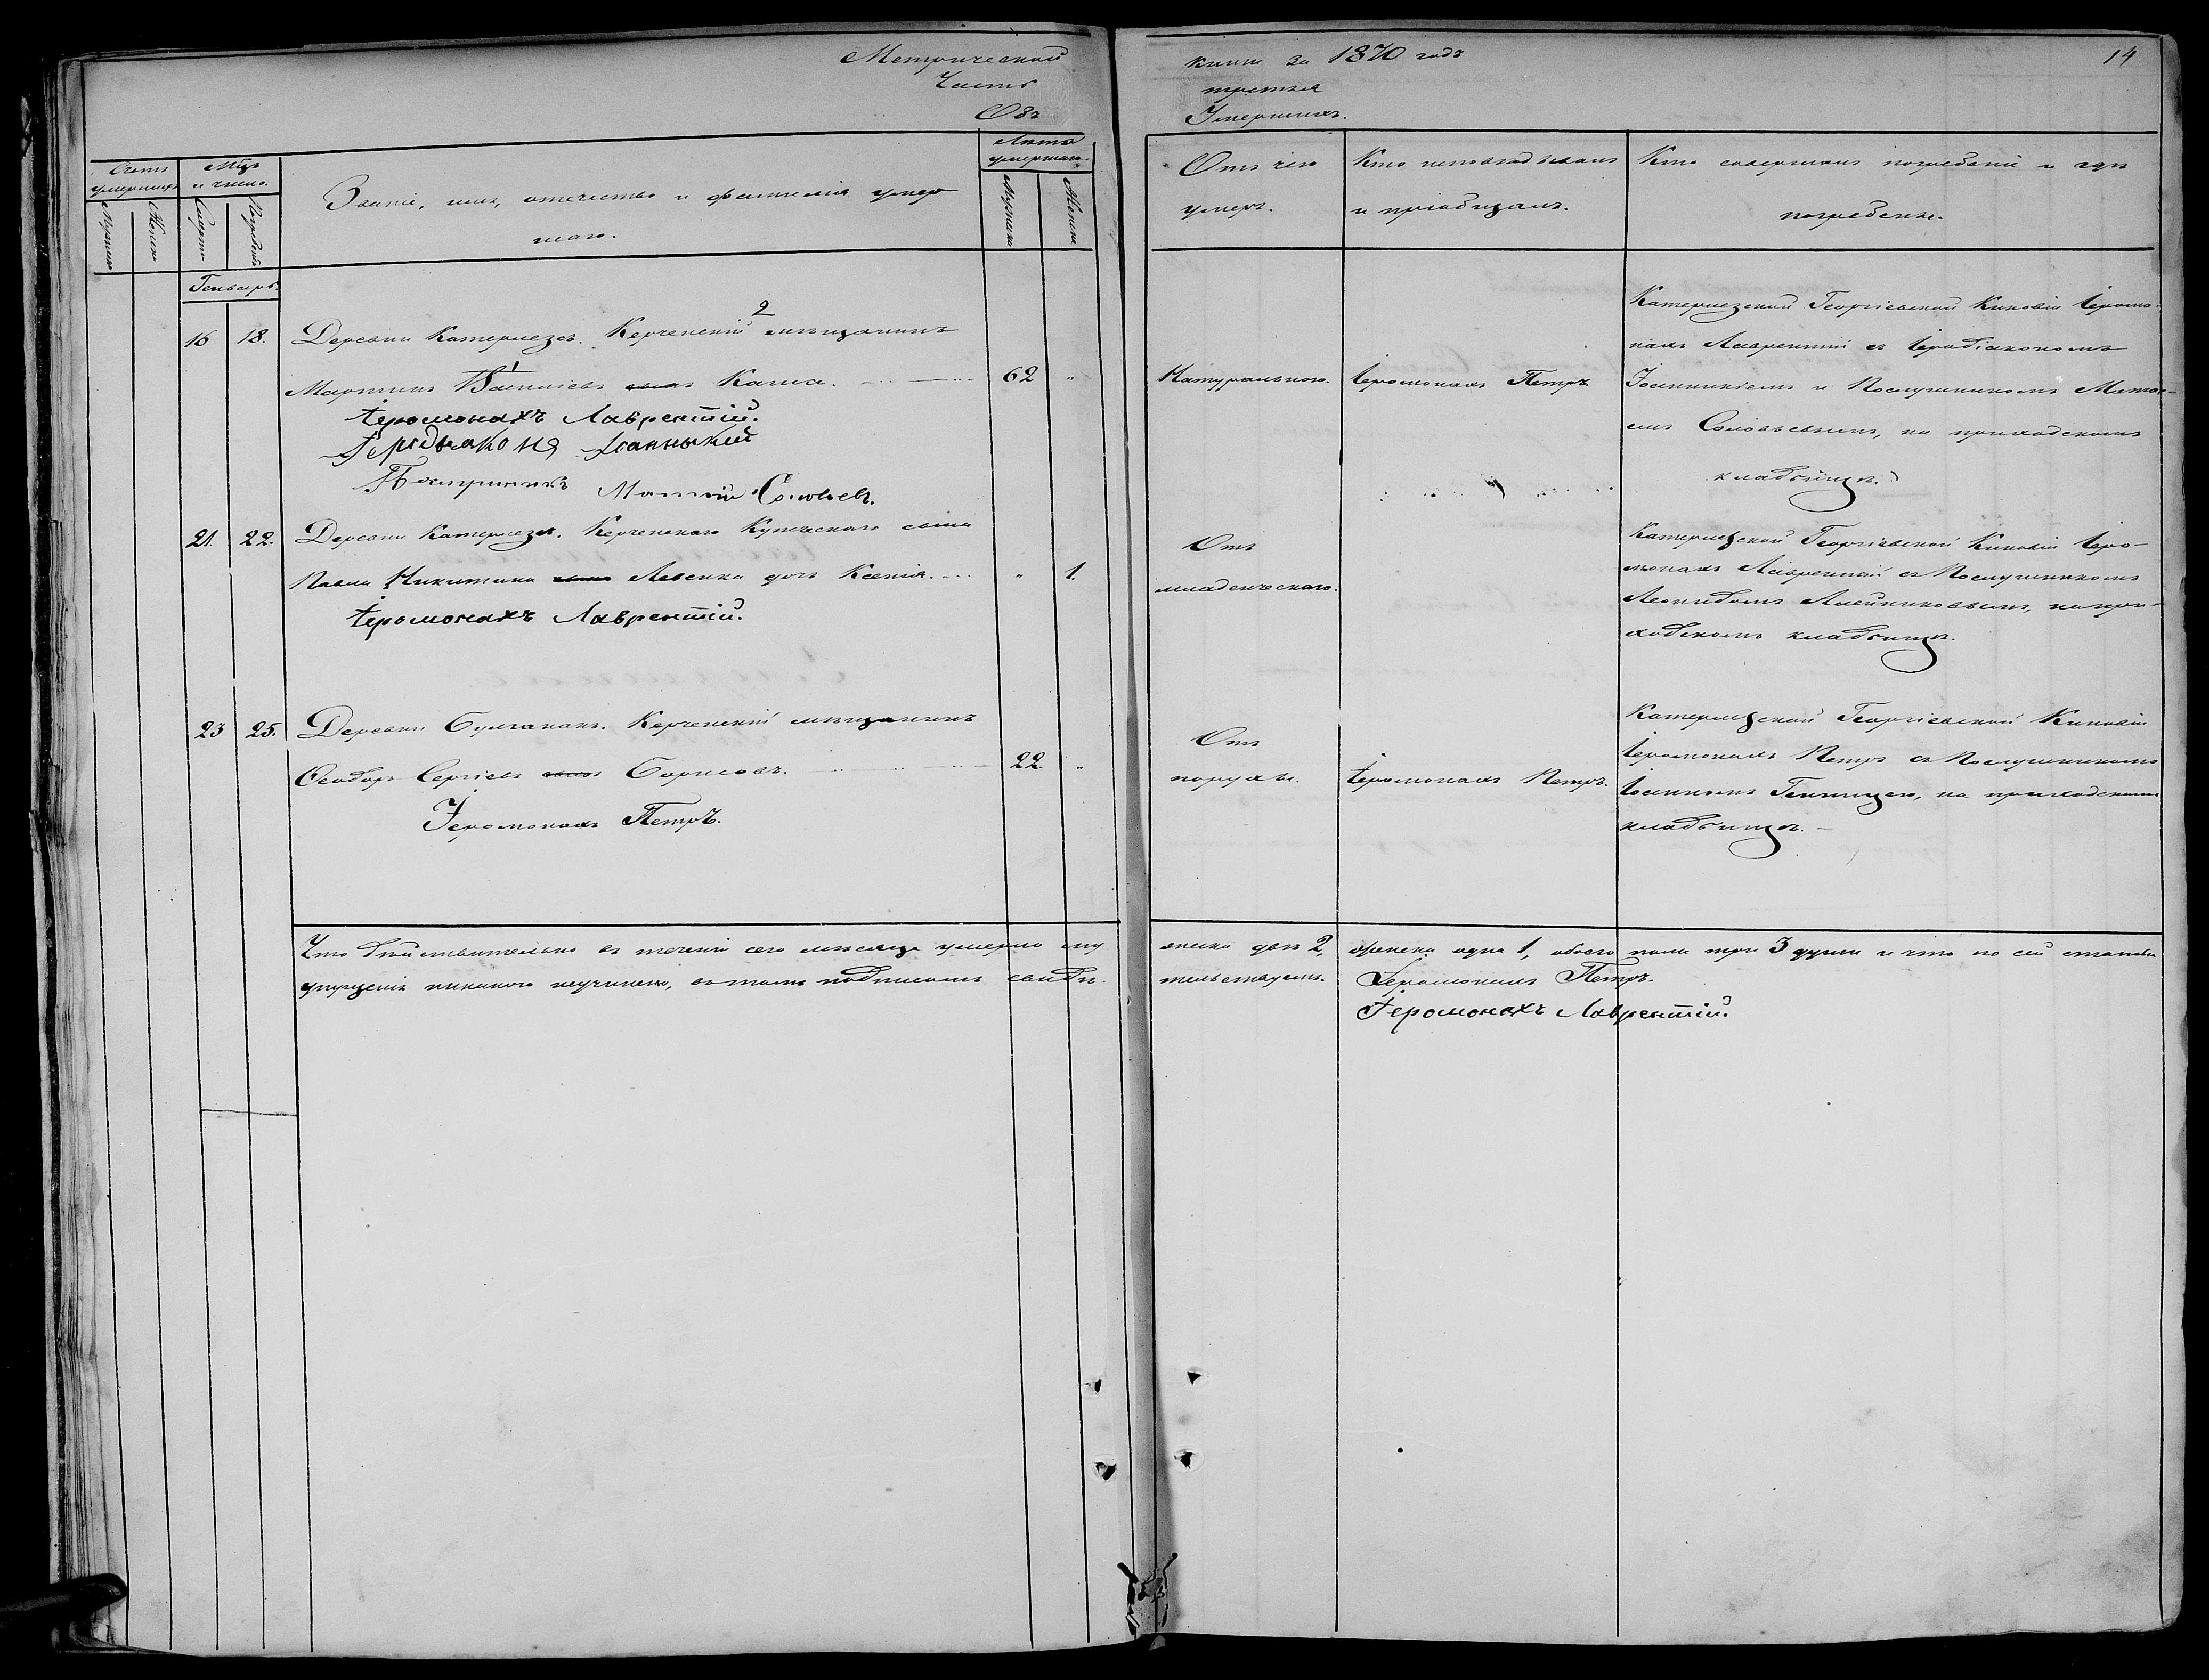 Метрической книги за 1870 годъ 14
Часть третья
Объ Умершихъ.
Счетъ умершихъ
Мужеска
Женска
Мцъ и число.
Смерти
Погребенія
Званіе, имя, отечество и фамилія умер
шаго.
Лета умершаго.
Мужеска
Женска
Отъ чего
умеръ.
Кто исповѣдывалъ
и пріобщалъ.
Кто совершалъ погребеніе и гдѣ
погребены.
Генварь.
16 18. Деревни Катерлезъ. Керченскій 2 мѣщанинъ
Мартинъ 1 Василіевъ Капла. 62 „
Іеромонахъ Лаврентій.
Іеродьяконя Іоанныкий
Послушникъ Матѳій Соловьевъ.
Натуральнаго.
Іеромонахъ Петръ.
Катерлезской Георгіевской Киновіи Іеромо-
нахъ Лаврентій съ Іеродіакономъ
Іоанникіемъ и Послушникомъ Матѳе-
емъ Соловьевымъ, на приходскомъ
кладбищѣ.
21. 22. Деревни Катерлезъ. Керченскаго Купческаго сына
Павла Никитина Левенка дочь Ксенія. „ 1.
Іеромонахъ Лаврентій.
Отъ
младенческаго.
Катерлезской Георгіевской Киновіи Іеро-
монахъ Лаврентій съ Послушникомъ
Леонидомъ Алейниковымъ, на при-
ходскомъ кладбищѣ.
23 25. Деревни Булганакъ. Керченскій мѣщанинъ
Ѳеодоръ Сергіевъ Борисовъ. 22. „
Іеромонахъ Петръ.
Отъ
Іеромонахъ Петръ.
Катерлезской Георгіевской Киновіи
Іеромонахъ Петръ съ Послушникомъ
Іоанномъ, на приходскомъ
кладбищѣ.
Что дѣйствительно въ теченіи сего мѣсяца умерло му
жеска два 2, женска одна 1, обоего пола три 3 души и что по сей статьѣ
упущенія никакого неучинено, въ томъ подписомъ свидѣ-
тельствуемъ. Іеромонахъ Петръ.
Іеромонахъ Лаврентій.